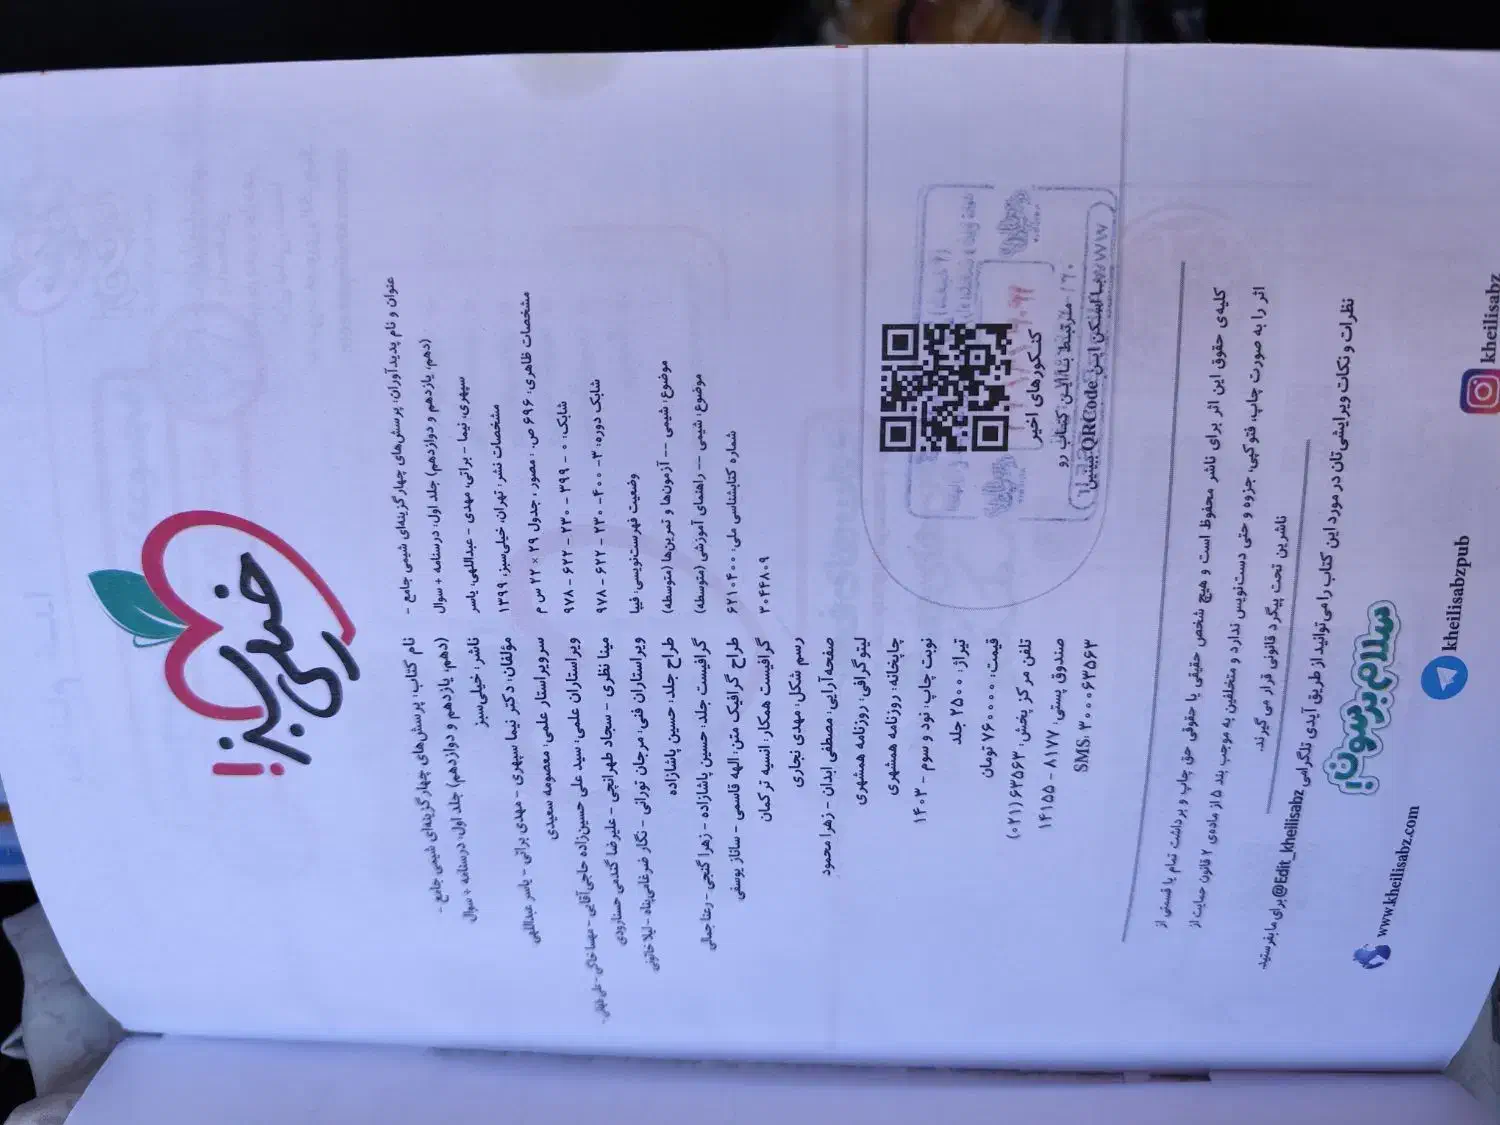 خیلی سبز!
نام کتاب: پرسش‌های چهارگزینه‌ای شیمی جامع -
(دهم، یازدهم و دوازدهم) جلد اول: درسنامه + سوال
ناشر: خیلی‌سبز
مؤلفان: دکتر نیما سپهری - مهدی براتی - یاسر عبداللهی
سرویراستار علمی: معصومه سعیدی
ویراستاران علمی: سید علی حسین‌زاده حاجی‌آقایی - مهسا خاکی -
مینا نظری - سجاد طهرانچی - علیرضا گندمی حسنارودی
ویراستاران فنی: مرجان نورانی - نگار ضرغامی‌پناه - لیلا خاتونی
طراح جلد: حسین پاشازاده
گرافیست جلد: حسین پاشازاده - زهرا گنجی - رعنا جمالی
طراح گرافیک متن: الهه قاسمی - ساناز یوسفی
گرافیست همکار: انسیه ترکمان
رسم شکل: مهدی نجاری
صفحه‌آرایی: مصطفی ابدان - زهرا محمود
لیتوگرافی: روزنامه همشهری
چاپخانه: روزنامه همشهری
نوبت چاپ: نود و سوم - ۱۴۰۳
تیراژ: ۲۵۰۰ جلد
قیمت: ۷۶۰۰۰۰ تومان
تلفن مرکز پخش: ۶۳۵۶۳ (۰۲۱)
صندوق پستی: ۸۱۷۷ - ۱۴۱۵۵
SMS: ۳۰۰۰۶۳۵۶۳
عنوان و نام پدیدآوران: پرسش‌های چهارگزینه‌ای شیمی جامع -
(دهم، یازدهم و دوازدهم) جلد اول: درسنامه + سوال
سپهری، نیما - براتی، مهدی - عبداللهی، یاسر
مشخصات نشر: تهران، خیلی‌سبز، ۱۳۹۹
مشخصات ظاهری: ۶۹۶ ص.: مصور، جدول ۲۹ × ۲۲ س م
شابک: ۰ - ۳۹۹ - ۲۳۰ - ۶۲۲ - ۹۷۸
شابک دوره: ۳ - ۴۰۰ - ۲۳۰ - ۶۲۲ - ۹۷۸
وضعیت فهرست‌نویسی: فیپا
موضوع: شیمی -- آزمون‌ها و تمرین‌ها (متوسطه)
موضوع: شیمی -- راهنمای آموزشی (متوسطه)
شماره کتابشناسی ملی: ۶۲۱۰۴۰۰
۳۰۴۴۸۰۹
کنکورهای اخیر
مرتبط با این کتاب رو
با اسکن این QRCode ببینین!
کلیه‌ی حقوق این اثر برای ناشر محفوظ است و هیچ شخص حقیقی یا حقوقی حق چاپ و برداشت تمام یا قسمتی از
اثر را به صورت چاپ، فتوکپی، جزوه و حتی دست‌نویس ندارد و متخلفین به موجب بند ۵ از ماده‌ی ۲ قانون حمایت از
ناشرین تحت پیگرد قانونی قرار می‌گیرند.
نظرات و نکات ویرایشی‌تان در مورد این کتاب را می‌توانید از طریق آیدی تلگرامی @Edit_kheilisabz برای ما بفرستید.
سلام برسون!
www.kheilisabz.com
kheilisabzpub
kheilisabz